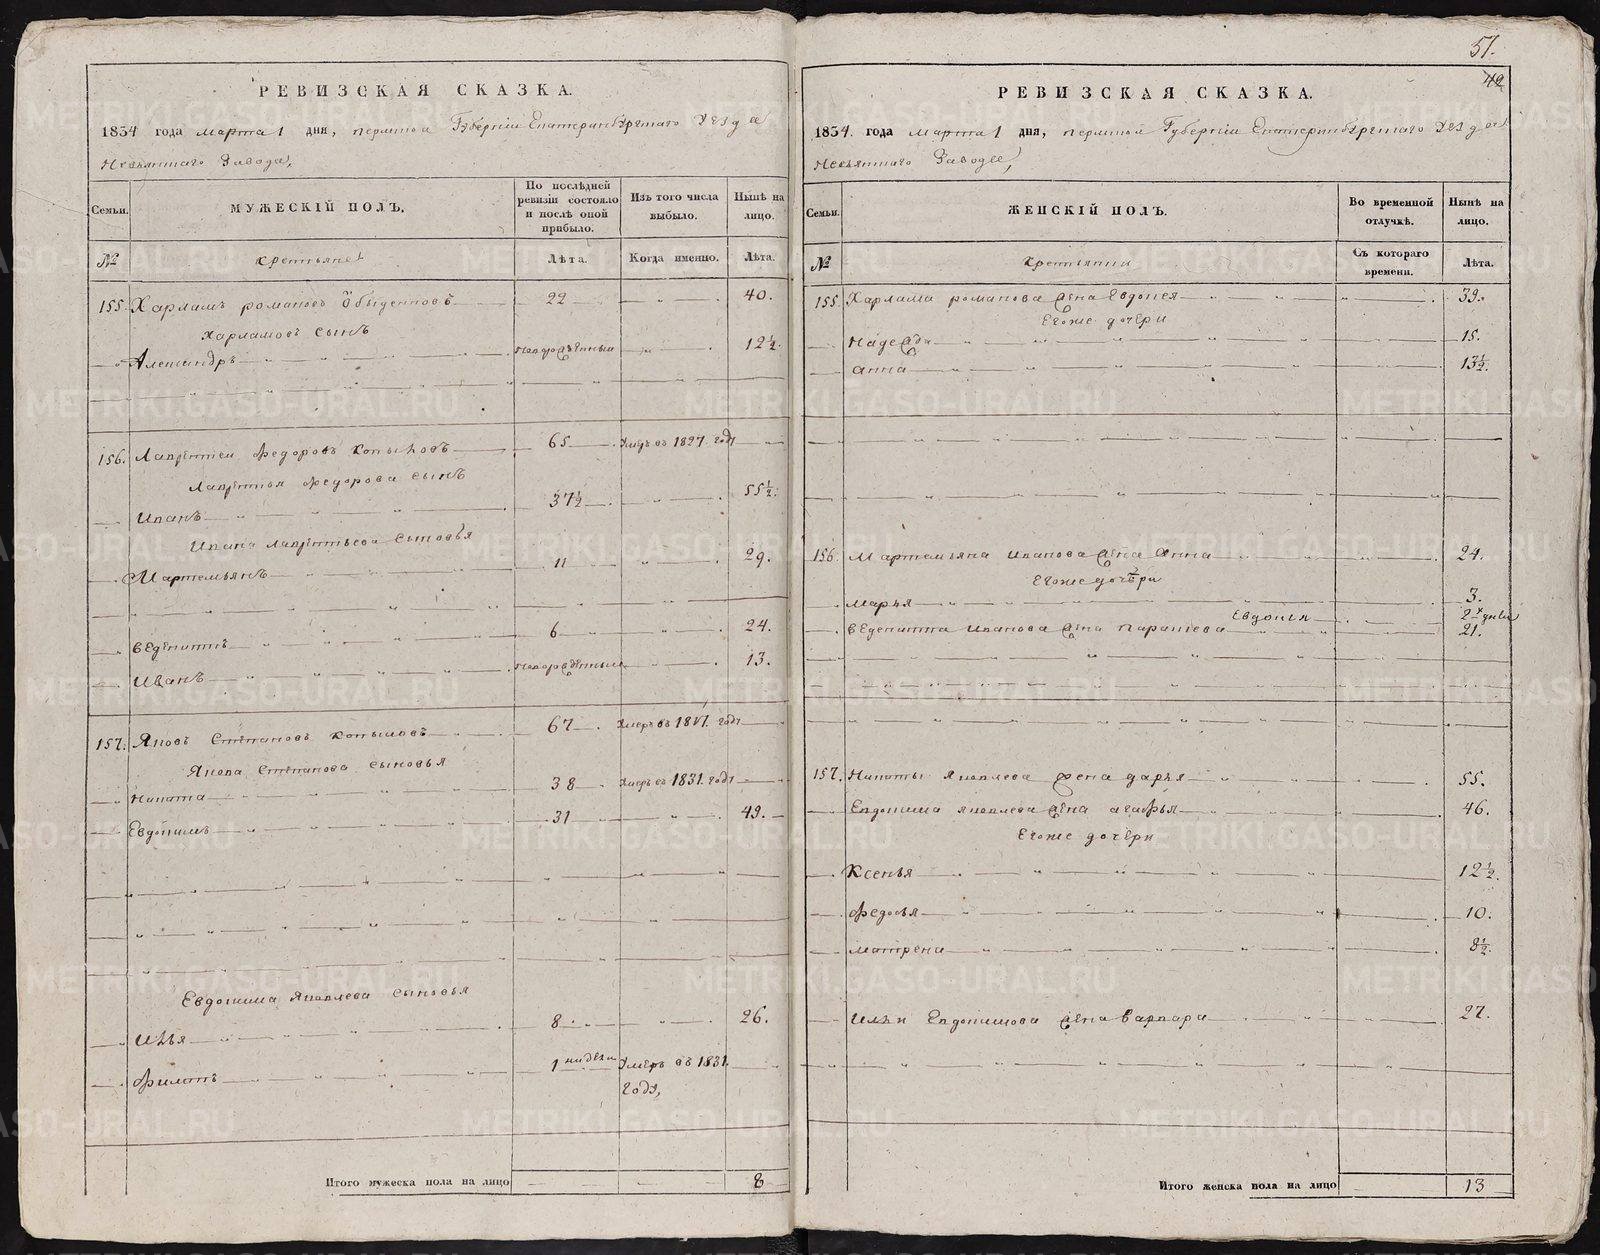 РЕВИЗСКАЯ СКАЗКА.
1834 года марта 1 дня, пермской Губерніи Екатеринбургскаго Уезда
Невьянскаго Завода,
Семьи.
МУЖЕСКІЙ ПОЛЪ.
По послѣдней ревизіи состояло и послѣ оной прибыло.
Изъ того числа выбыло.
Нынѣ на лицо.
№
крестьяне
Лѣта.
Когда именно.
Лѣта.
155. Харламъ романовъ Обыденновъ 22 40.
Харламовъ сынъ
Александръ новорожденный 12½.
156. Лаврентей Федоровъ Копыловъ 65 Умеръ въ 1827. году
Лаврентья Федорова сынъ
Иванъ 37½ 55½.
Ивана Лаврентьева сыновья
Мартемьянъ 11 29.
Веденихтъ 6 24.
Иванъ новорожденный 13.
157. Яковъ Степановъ Копыловъ 67 Умеръ въ году
Якова Степанова сыновья
Никита 38 Умеръ въ 1831. году
Евдокимъ 31 49.
Евдокима Яковлева сыновья
Илья 8. 26.
Филатъ 1 недели Умеръ въ 1831.
году,
Итого мужеска пола на лицо 8
51.
42
РЕВИЗСКАЯ СКАЗКА.
1834. года марта 1 дня, пермской Губерніи Екатеринбургскаго Уезда
Невьянскаго Завода,
Семьи.
ЖЕНСКІЙ ПОЛЪ.
Во временной отлучкѣ.
Нынѣ на лицо.
№
крестьянки
Съ котораго времени.
Лѣта.
155. Харлама романова жена Евдокея 39.
Егоже дочери
Надежда 15.
анна 13½.
156. Мартемьяна Иванова жена Анна 24.
Егоже дочери
Марья 3.
Евдокия 2х дней
Веденихта Иванова жена Парасева 21.
157. Никиты Яковлева жена дарья 55.
Евдокима Яковлева жена агафья 46.
Егоже дочери
Ксенья 12½.
Федосья 10.
матрена 8½.
Ильи Евдокимова жена Варвара 27.
Итого женска пола на лицо 13
METRIKI.GASO-URAL.RU